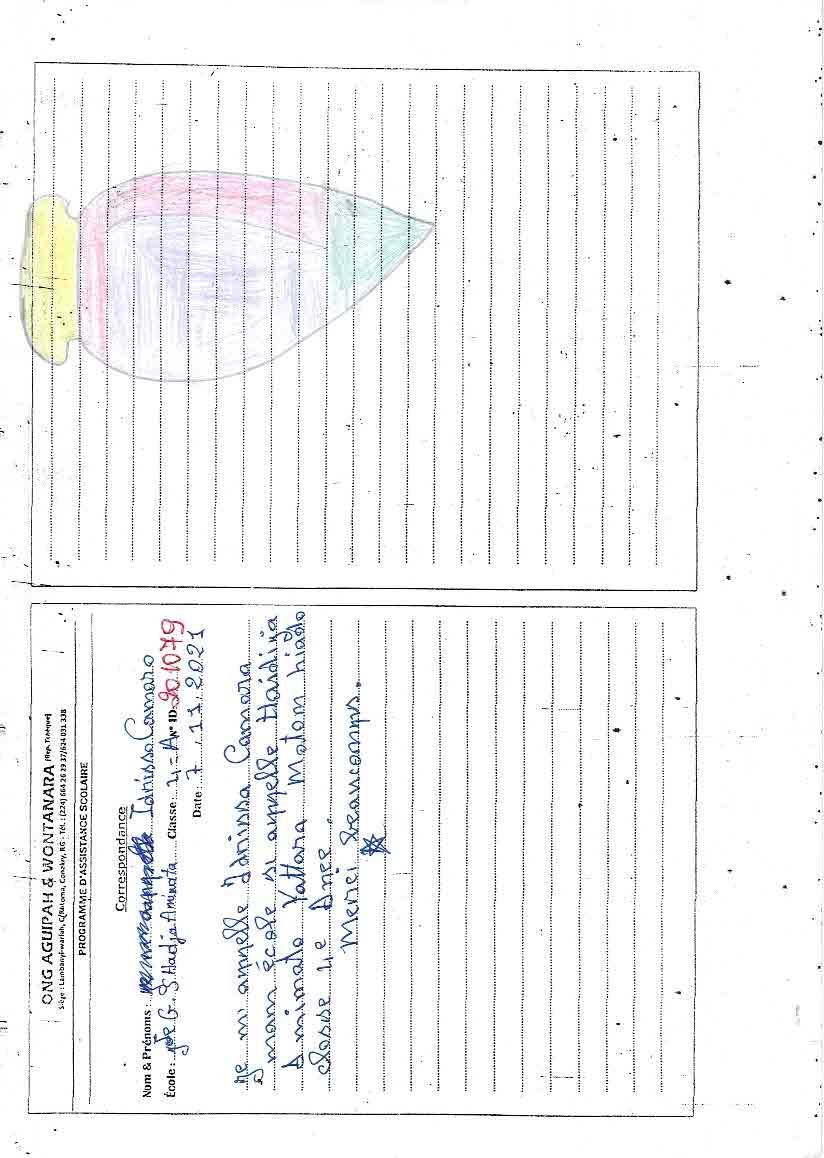 ONG AGUIPAH & WONTANARA (Rép. Tchèque)
Siège : Lambanyi-warlah, C/Ratoma, Conakry, RG - Tél. : (224) 664 26 29 37/614 031 338
PROGRAMME D'ASSISTANCE SCOLAIRE
Correspondance
Nom & Prénoms : Idrissa Camara
École : G.S Hadja Aminata Classe : 4 = A N° ID: 201079
Date : 7 . 11 . 2021
Je m'appelle Idrissa Camara
mam école se appelle Haidija
Aminata Yattara Matam hiado
classe 4e Anee.
Merci beaucomps.